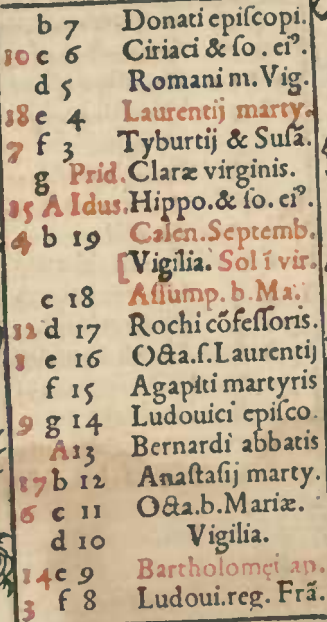 b 7 Donati epiſcopi.
10 c 6 Ciriaci & ſo . ei⁹.
d 5 Romani m. Vig.
18 e 4 Laurentij marty.
7 f 3 Tyburtij & Suſã.
g Prid. Claræ virginis.
15 A Idus. Hippo. & ſo. ei⁹.
4 b 19 Calen. Septemb.
[Vigilia. Sol ĩ vir.
c 18 Aſſump. b. Ma.
12 d 17 Rochi cõfeſſoris.
1 e 16 Octa. ſ. Laurentij
f 15 Agapiti martyris
9 g 14 Ludouici epiſco.
A 13 Bernardi abbatis
17 b 12 Anaſtaſij marty.
6 c 11 Octa. b. Mariæ.
d 10 Vigilia.
14 e 9 Bartholomęi ap.
3 f 8 Ludoui. reg. Frã.